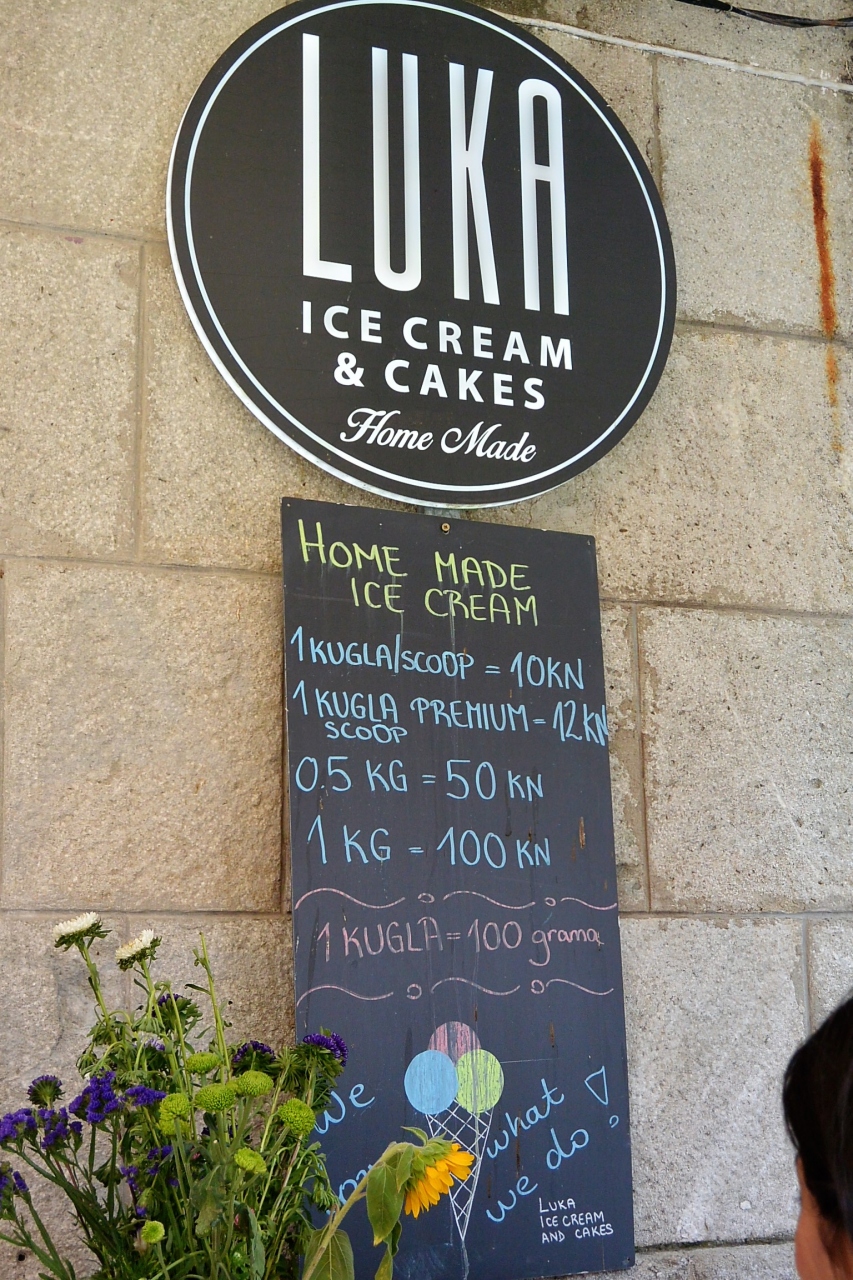 LUKA
ICE CREAM
& CAKES
Home Made
HOME MADE
ICE CREAM
1 KUGLA/SCOOP = 10KN
1 KUGLA PREMIUM = 12KN
SCOOP
0.5 KG = 50 KN
1 KG = 100 KN
1 KUGLA = 100 grama
We
what
we do!
LUKA
ICE CREAM
AND CAKES